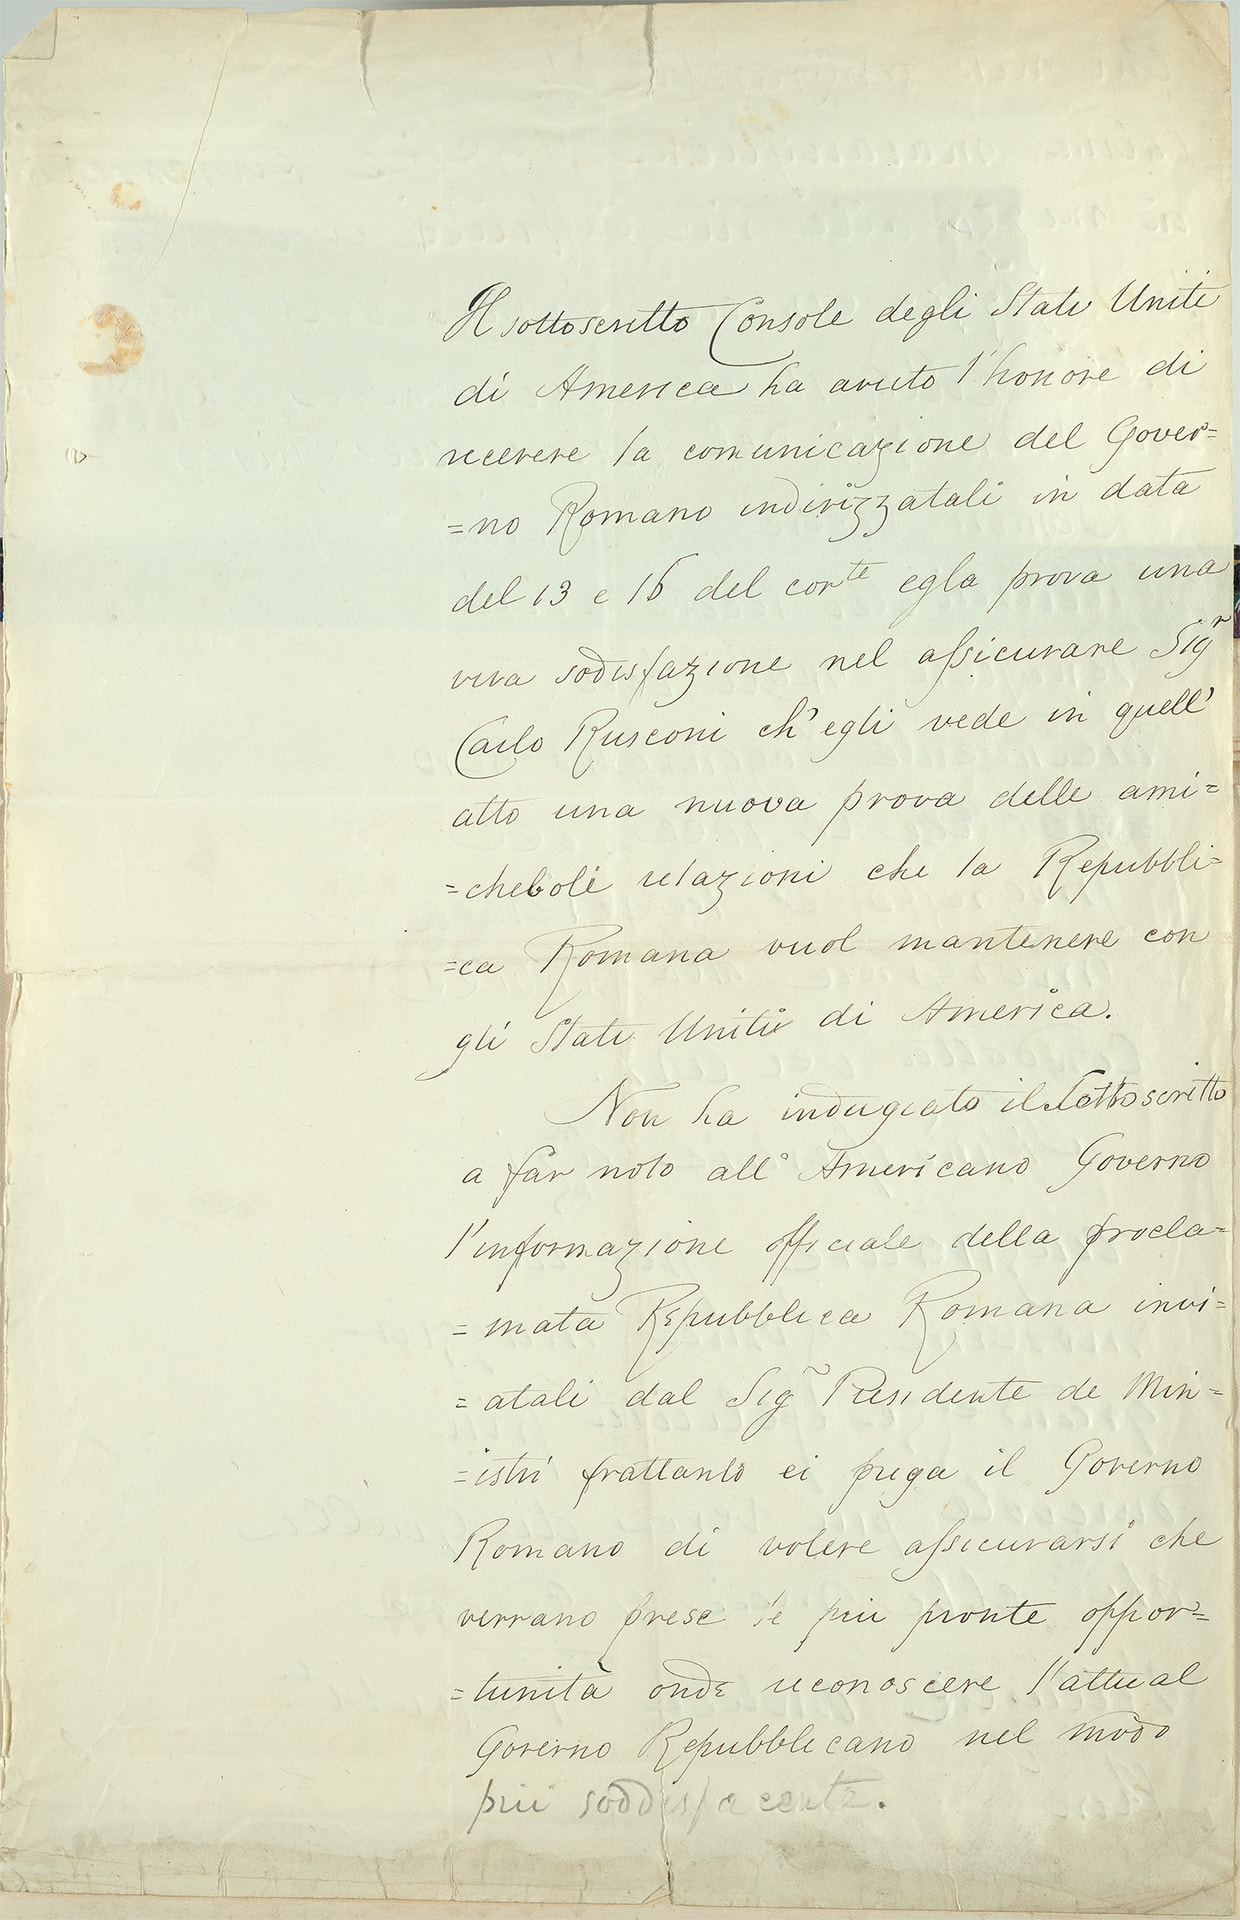 Il sottoscritto Console degli Stati Uniti
di America ha avuto l'honore di
ricevere la comunicazione del Gover=
=no Romano indirizzatali in data
del 13 e 16 del corte egla prova una
viva sodisfazione nel assicurare Sigr
Carlo Rusconi ch' egli vede in quell'
atto una nuova prova delle ami=
=cheboli relazioni che la Repubbli=
=ca Romana vuol mantenere con
gli Stati Uniti di America.
Non ha indugiato il Sottoscritto
a far noto all' Americano Governo
l'informazione officiale della procla=
=mata Repubblica Romana invi=
=atali dal Sig Presidente de Min=
=istri frattanto ei prega il Governo
Romano di volere assicurarsi che
verrano prese le piu pronte oppor=
=tunità onde riconoscere l'attual
Governo Repubblicano nel modo
piu soddisfacente.